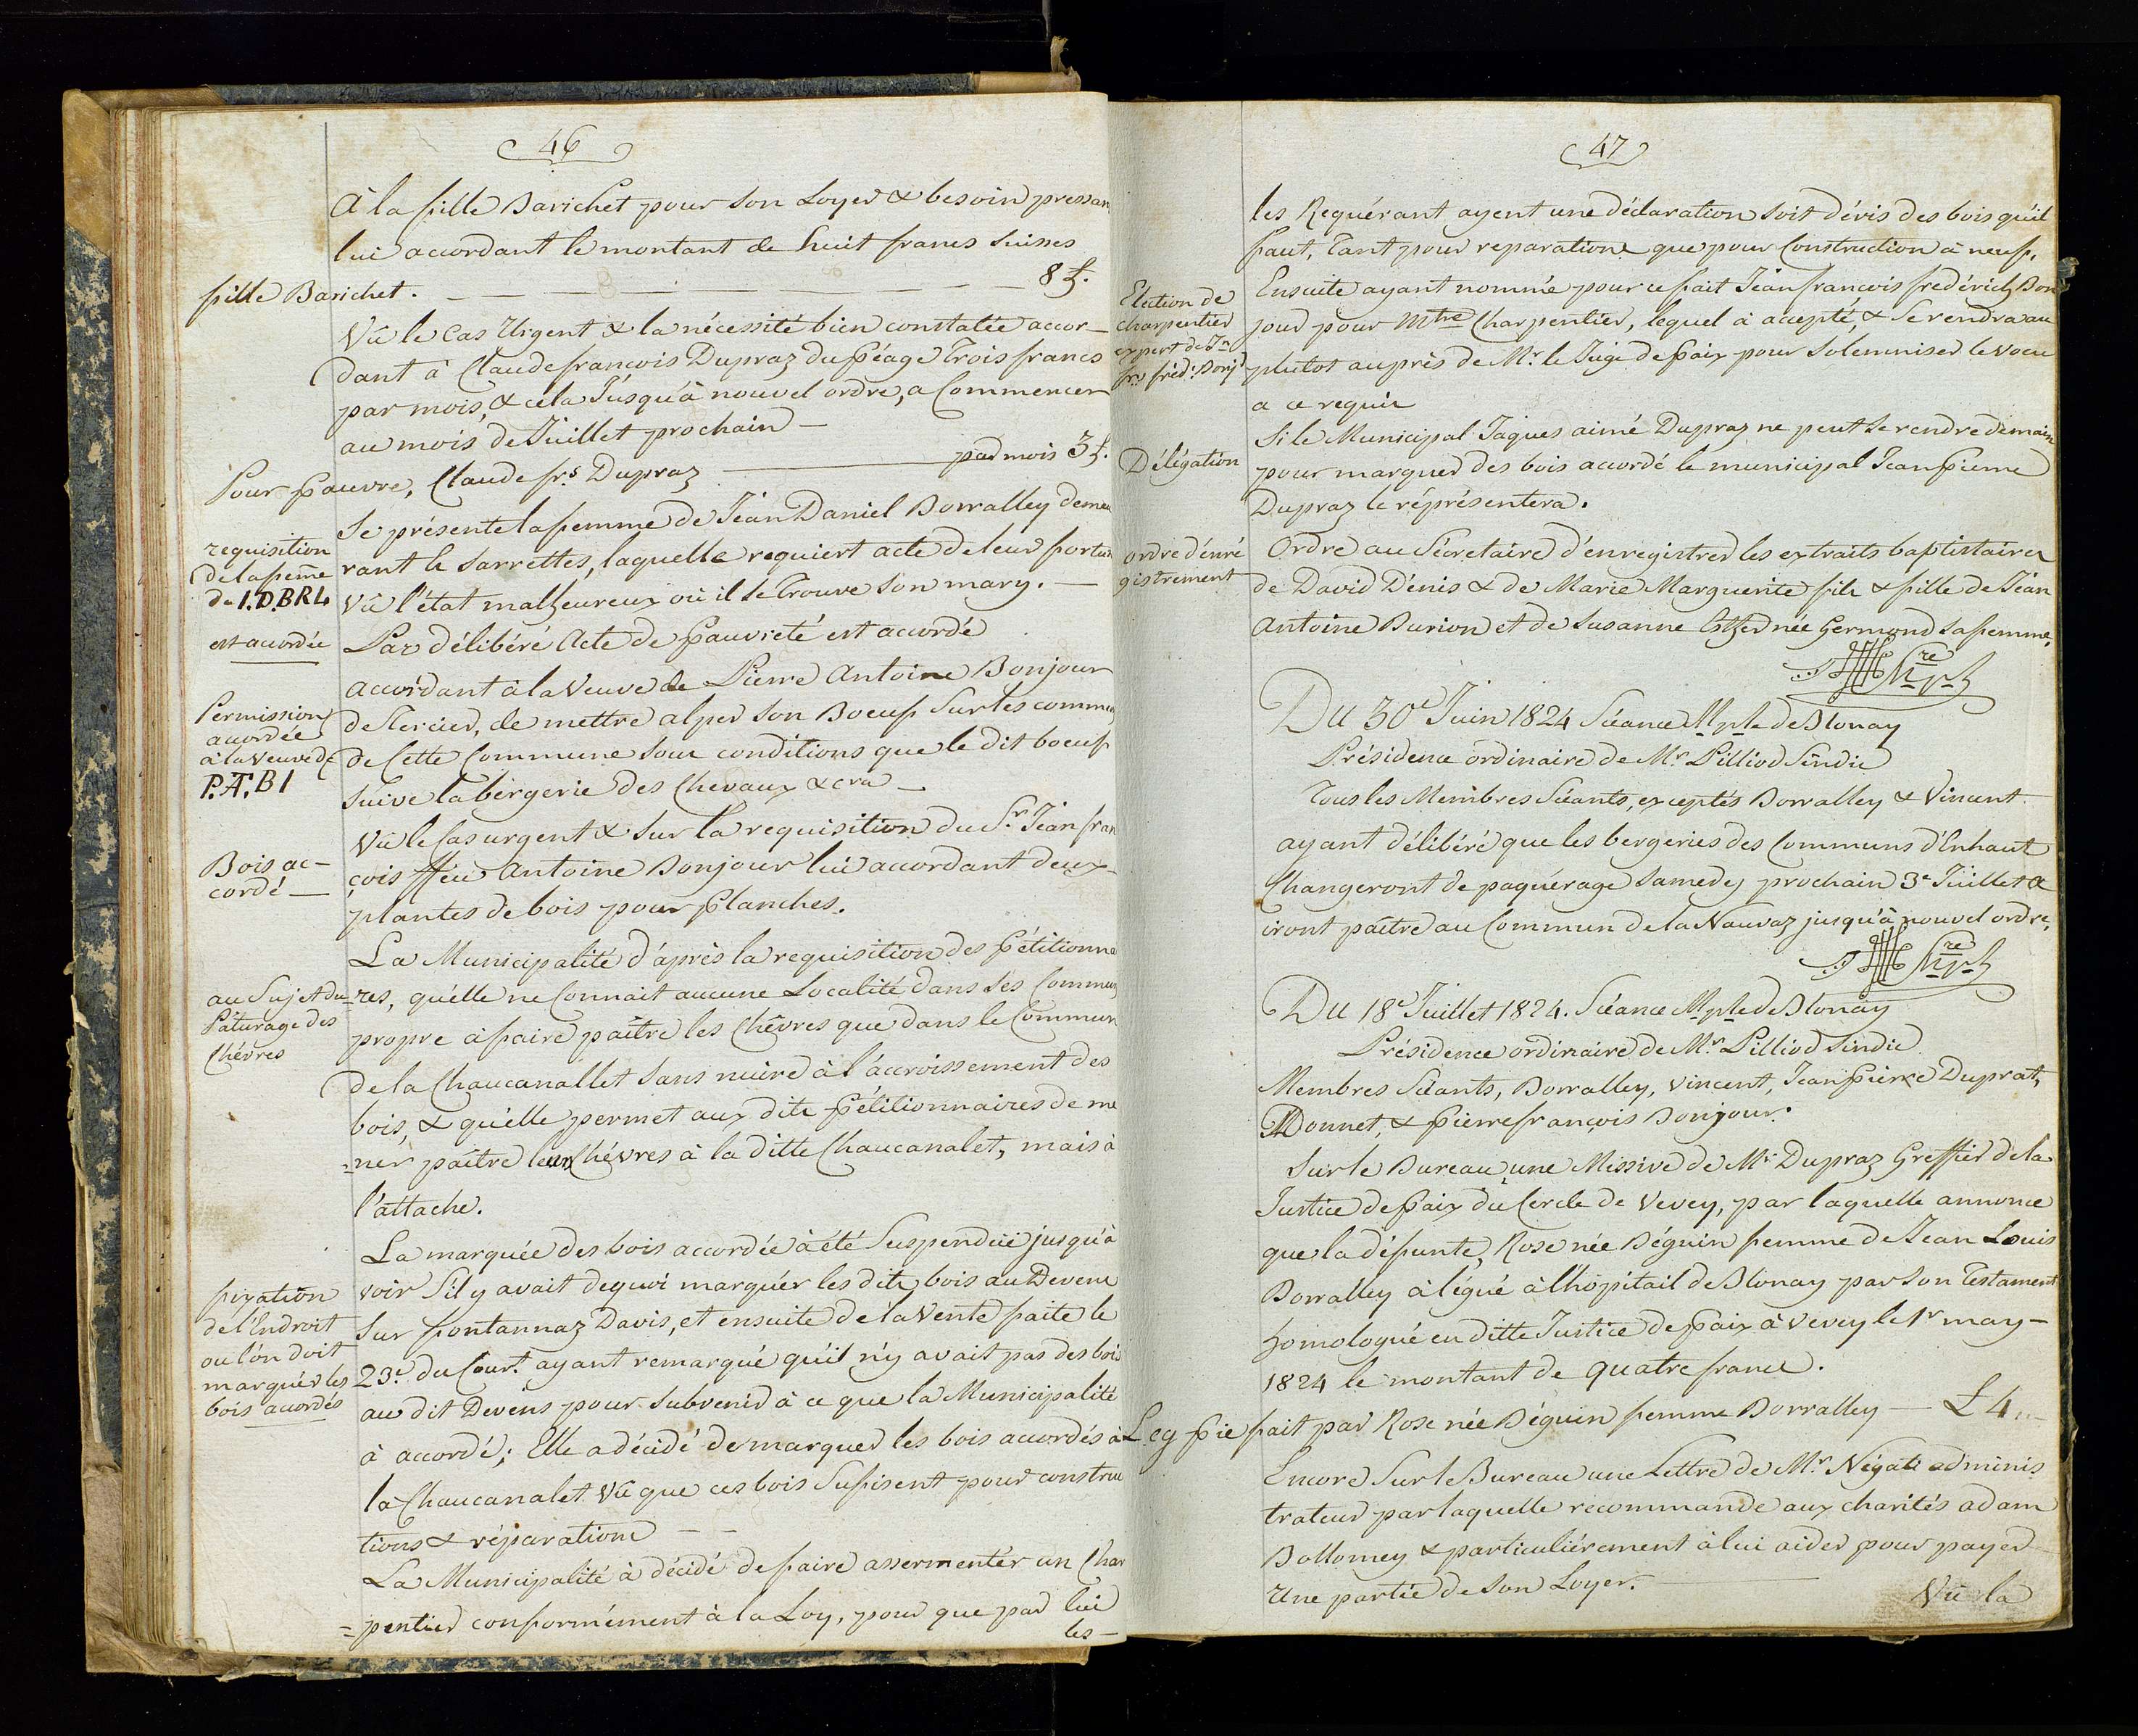 46
A la fille Barichet pour son Loyer & besoin pressan
lui accordant le montant de huit francs suisses
fille Barichet. 8 £.
Vû le Cas Urgent & la nécessité bien constatée accor-
dant à Claude françois Dupraz du péage Trois francs
par mois, & cela Jusqu'à nouvel ordre, a Commencer
au mois de Juillet prochain
Pour pauvre, Claude frs. Dupraz par mois 3 £.
requisition
de la feme
de I.D.BRL
est accordée
Se présente la femme de Jéan Daniel Borralley demeu
rant le sarrettes, laquelle requiert acte de leur fortun
Vû l'état malheureux où il se trouve son mary.
Par délibéré Acte de pauvreté est accordé
Permission
accordée
à la Veuve de
P.A.BI
accordant à la Veuve de Pierre Antoine Bonjour
de Stercier, de mettre alper son Boeuf sur les commu
de Cette Commune sous conditions que le dit boeuf
suive la bergerie des Chevaux & cra
Bois ac-
cordé
Vû le Cas urgent & sur la requisition du Sr. Jéan fran
çois ffeu Antoine Bonjour lui accordant deux
plantes de bois pour planches.
au Sujet du
Pâturage des
Chévres
La Municipalité d'après la requisition des pétitionna
=res, qu'elle ne Connait aucune Localité dans ses Commu
propre à faire paître les Chêvres que dans le Commun
de la Chaucanallet sans nuire à l'accroissement des
bois, & qu'elle permet aux dits pétitionnaires de me
=ner paître leurs Chévres à la ditte Chaucanalet, mais à
l'attache.
fixation
de l'Endroit
ou l'on doit
marquér les
bois accordés
La marquée des bois accordée à été Suspenduë jusqu'à
voir S'il y avait dequoi marquér les dits bois au Devens
sur fontannaz Davis, et ensuite de la Vente faite le
23e. du Court. ayant remarqué qu'il n'y avait pas des bois
au dit Devens pour subvenir à ce que la Municipalité
à accordé; Elle a décidé de marquer les bois accordés à
la Chaucanalet Vû que ces bois Sufisent pour construc
tions & réparations
La Municipalité à décidé de faire assermentér un Char
=pentier conformément à la Loy, pour que par lui
les
47
les Requérant ayent une déclaration soit dévis des bois qu'il
faut, Tant pour reparations que pour Construction à neuf,
Election de
charpentier
expert de Jn
frs fréd: Bonj.
Ensuite ayant nommé pour ce fait Jéan françois frédérich Bon
jour pour Mtre Charpentier, lequel à accepté, & se rendra au
plutot auprès de Mr. le Juge de paix pour solemniser le voeu
a ce requis
Délégation
Si le Municipal Jaques aimé Dupraz ne peut se rendre demain
pour marquer des bois accordé le municipal Jean pierre
Dupraz le réprésentera.
ordre d'enré
gistrement
Ordre au Sécretaire d'enregistrer les extraits baptistaires
de David Dénis & de Marie Marguerite fils & fille de Jéan
Antoine Burion et de Susanne Esther née Germond sa femme.
Du 30e Juin 1824 Séance Mple de Blonay
Présidence ordinaire de Mr. Pilliod Sindic
Tous les Membres Séants, exceptés Borralley & Vincent
ayant délibéré que les bergeries des Communs d'Enhaut
Changeront de paquérage Samedy prochain 3e Juillet &
iront paître au Commun de la Nauvaz jusqu'à nouvel ordre,
Du 18e Juillet 1824. Séance Mple de Blonay
Présidence ordinaire de Mr. Pilliod Sindic
Membres Séants, Borralley, Vincent, Jean pierre Duprat,
Monnet, & pierre françois Bonjour.
Sur le Bureau une Missive de Mr. Dupraz Greffier de la
Justice de paix du Cercle de Vevey, par laquelle annonce
que la défunte, Rose née Béguin femme de Jean Louis
Borralley à légué à l'hôpitail de Blonay par son Testament
homologué en ditte Justice de paix à Vevey le 1r may
1824 le montant de quatre francs.
Leg pie fait par Rose née Béguin femme Borralley £ 4
Encore Sur le Bureau une Lettre de Mr. Négati adminis
trateur par laquelle recommande aux charités adam
Bollomey & particuliérement à lui aider pour payer
Une partie de son Loyer.
Vû la